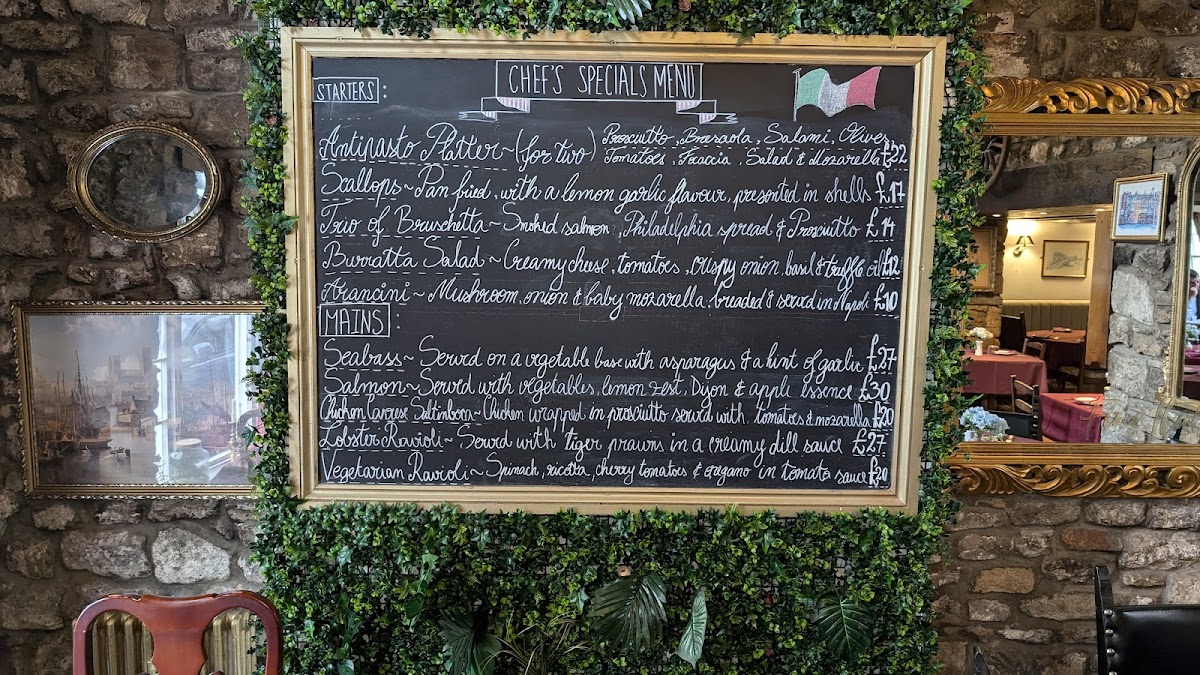 CHEF'S SPECIALS MENU
STARTERS:
Antipasto Platter ~ (for two) Prosciutto, Bresaola, Salami, Olives
Tomatoes, Foccia, Salad & Mozarella £32
Scallops ~ Pan fried, with a lemon garlic flavour, presented in shells £17
Trio of Bruschetta ~ Smoked salmon, Philadelphia spread & Prosciutto £14
Burratta Salad ~ Creamy cheese, tomatoes, crispy onion, basil & truffle oil £12
Arancini ~ Mushroom, onion & baby mozarella breaded & servd in Napoli £10
MAINS:
Seabass ~ Servd on a vegetable base with asparagus & a hint of garlic £27
Salmon ~ Servd with vegetables, lemon zest, Dijon & apple essence £30
Chicken Saltinborn ~ Chicken wrapped in prosciutto servd with tomatoes & mozarella £20
Lobster Ravioli ~ Servd with tiger prawns in a creamy dill sauce £27
Vegetarian Ravioli ~ Spinach, ricotta, cherry tomatoes & oregano in tomata sauce £20